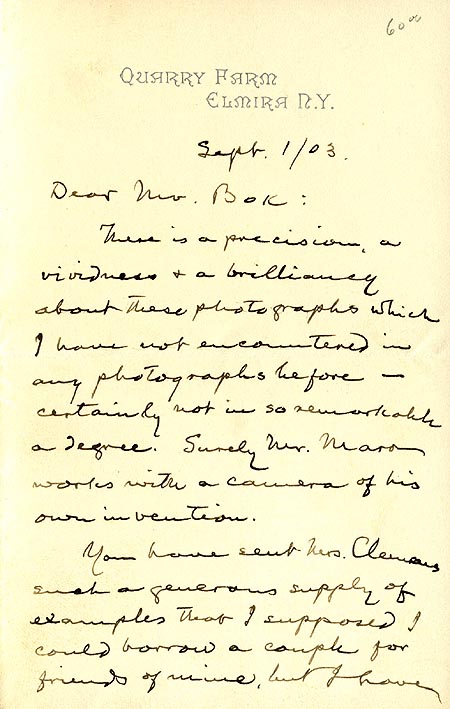 60 00
QUARRY FARM
ELMIRA N.Y.
Sept. 1/03.
Dear Mr. Bok:
There is a precision, a
vividness & a brilliancy
about these photographs which
I have not encountered in
any photographs before —
certainly not in so remarkable
a degree. Surely Mr. Maron
works with a camera of his
own invention.
You have sent Mrs. Clemens
such a generous supply of
examples that I supposed I
could borrow a couple for
friends of mine, but I have